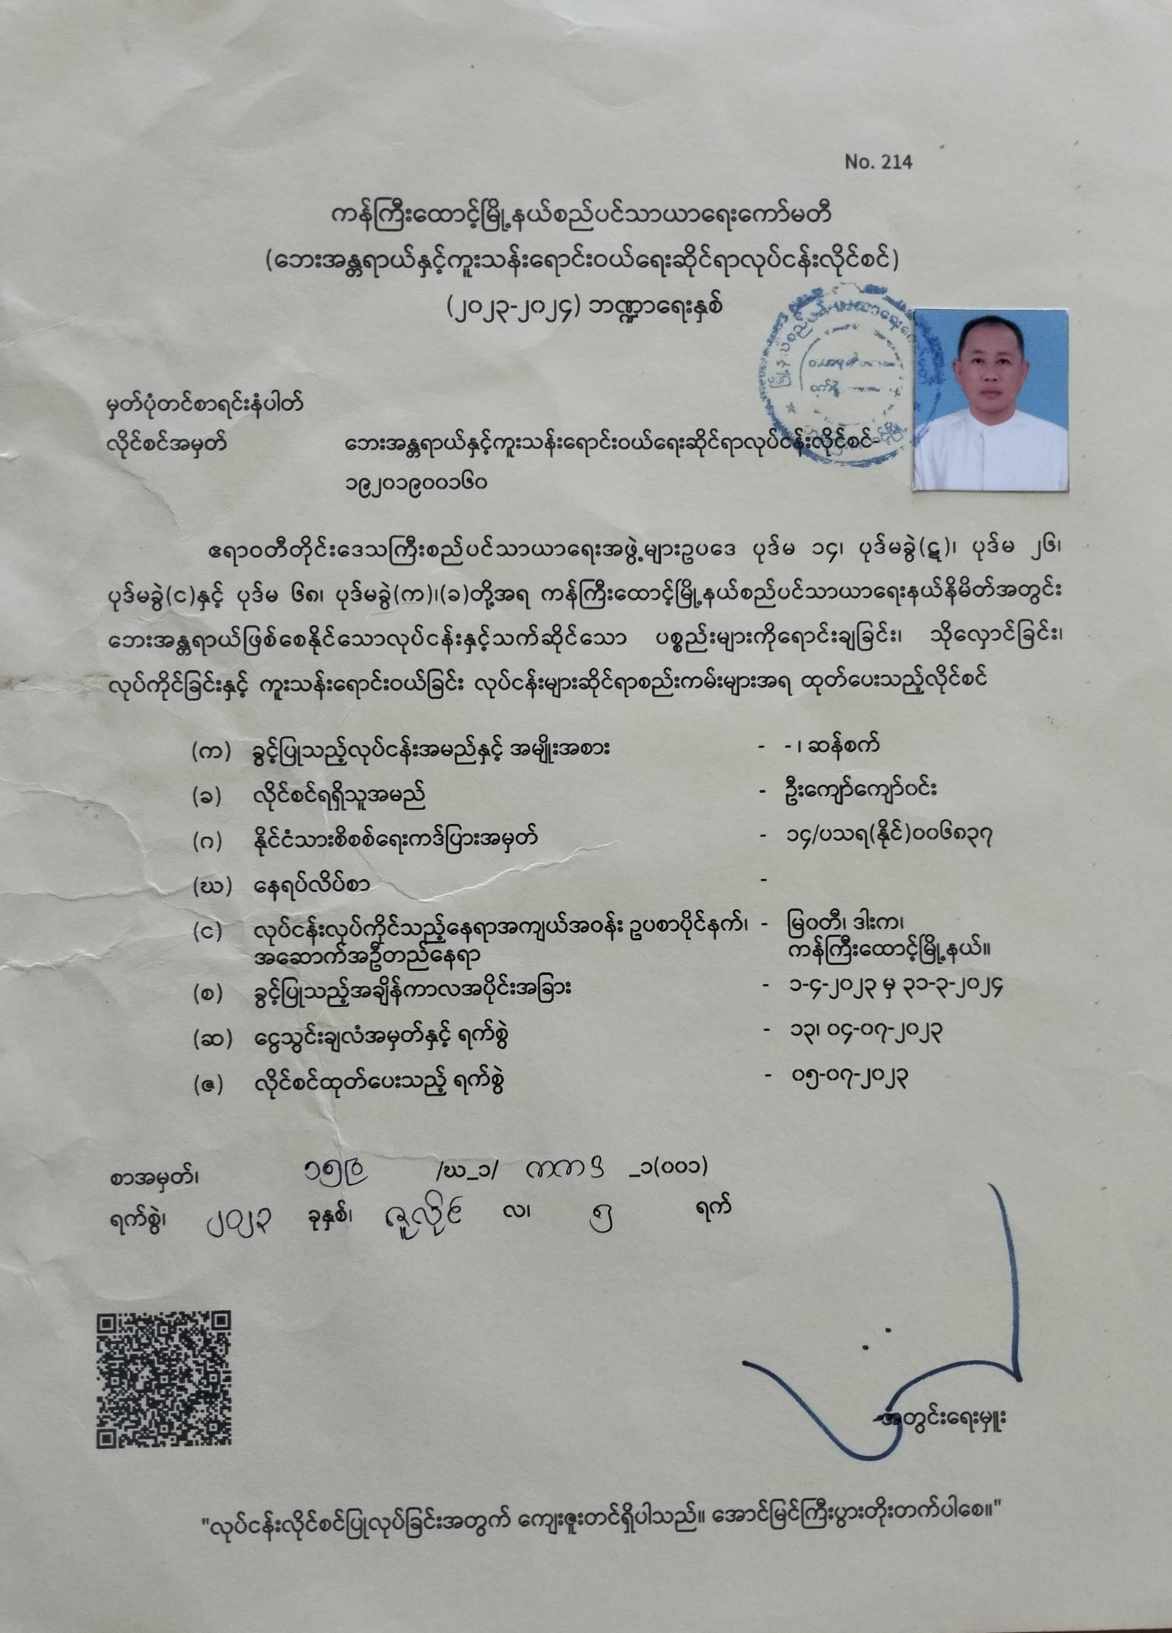 No. 214
ကန်ကြီးထောင့်မြို့နယ်စည်ပင်သာယာရေးကော်မတီ
(ဘေးအန္တရာယ်နှင့်ကူးသန်းရောင်းဝယ်ရေးဆိုင်ရာလုပ်ငန်းလိုင်စင်)
(၂၀၂၃-၂၀၂၄) ဘဏ္ဍာရေးနှစ်
မှတ်ပုံတင်စာရင်းနံပါတ်
လိုင်စင်အမှတ် ဘေးအန္တရာယ်နှင့်ကူးသန်းရောင်းဝယ်ရေးဆိုင်ရာလုပ်ငန်းလိုင်စင်-
၁၉၂၀၁၉၀၀၁၆၀
ဧရာဝတီတိုင်းဒေသကြီးစည်ပင်သာယာရေးအဖွဲ့များဥပဒေ ပုဒ်မ ၁၄၊ ပုဒ်မခွဲ(ဋ္ဌ)၊ ပုဒ်မ ၂၆၊
ပုဒ်မခွဲ(င)နှင့် ပုဒ်မ ၆၈၊ ပုဒ်မခွဲ(က)၊(ခ)တို့အရ ကန်ကြီးထောင့်မြို့နယ်စည်ပင်သာယာရေးနယ်နိမိတ်အတွင်း
ဘေးအန္တရာယ်ဖြစ်စေနိုင်သောလုပ်ငန်းနှင့်သက်ဆိုင်သော ပစ္စည်းများကိုရောင်းချခြင်း၊ သိုလှောင်ခြင်း၊
လုပ်ကိုင်ခြင်းနှင့် ကူးသန်းရောင်းဝယ်ခြင်း လုပ်ငန်းများဆိုင်ရာစည်းကမ်းများအရ ထုတ်ပေးသည့်လိုင်စင်
(က) ခွင့်ပြုသည့်လုပ်ငန်းအမည်နှင့် အမျိုးအစား - - ၊ ဆန်စက်
(ခ) လိုင်စင်ရရှိသူအမည် - ဦးကျော်ကျော်ဝင်း
(ဂ) နိုင်ငံသားစိစစ်ရေးကဒ်ပြားအမှတ် - ၁၄/ပသရ(နိုင်)၀၀၆၈၃၇
(ဃ) နေရပ်လိပ်စာ -
(င) လုပ်ငန်းလုပ်ကိုင်သည့်နေရာအကျယ်အဝန်း ဥပစာပိုင်နက်၊ - မြဝတီ၊ ဒါးက၊
အဆောက်အဦတည်နေရာ ကန်ကြီးထောင့်မြို့နယ်။
(စ) ခွင့်ပြုသည့်အချိန်ကာလအပိုင်းအခြား - ၁-၄-၂၀၂၃ မှ ၃၁-၃-၂၀၂၄
(ဆ) ငွေသွင်းချလံအမှတ်နှင့် ရက်စွဲ - ၁၃၊ ၀၄-၀၇-၂၀၂၃
(ဇ) လိုင်စင်ထုတ်ပေးသည့် ရက်စွဲ - ၀၅-၀၇-၂၀၂၃
စာအမှတ်၊ /ဃ_၁/ ကကဒ _၁(၀၀၁)
ရက်စွဲ၊ ၂၀၂၃ ခုနှစ်၊ ဇူလိုင် လ၊ ၅ ရက်
အတွင်းရေးမှူး
"လုပ်ငန်းလိုင်စင်ပြုလုပ်ခြင်းအတွက် ကျေးဇူးတင်ရှိပါသည်။ အောင်မြင်ကြီးပွားတိုးတက်ပါစေ။"